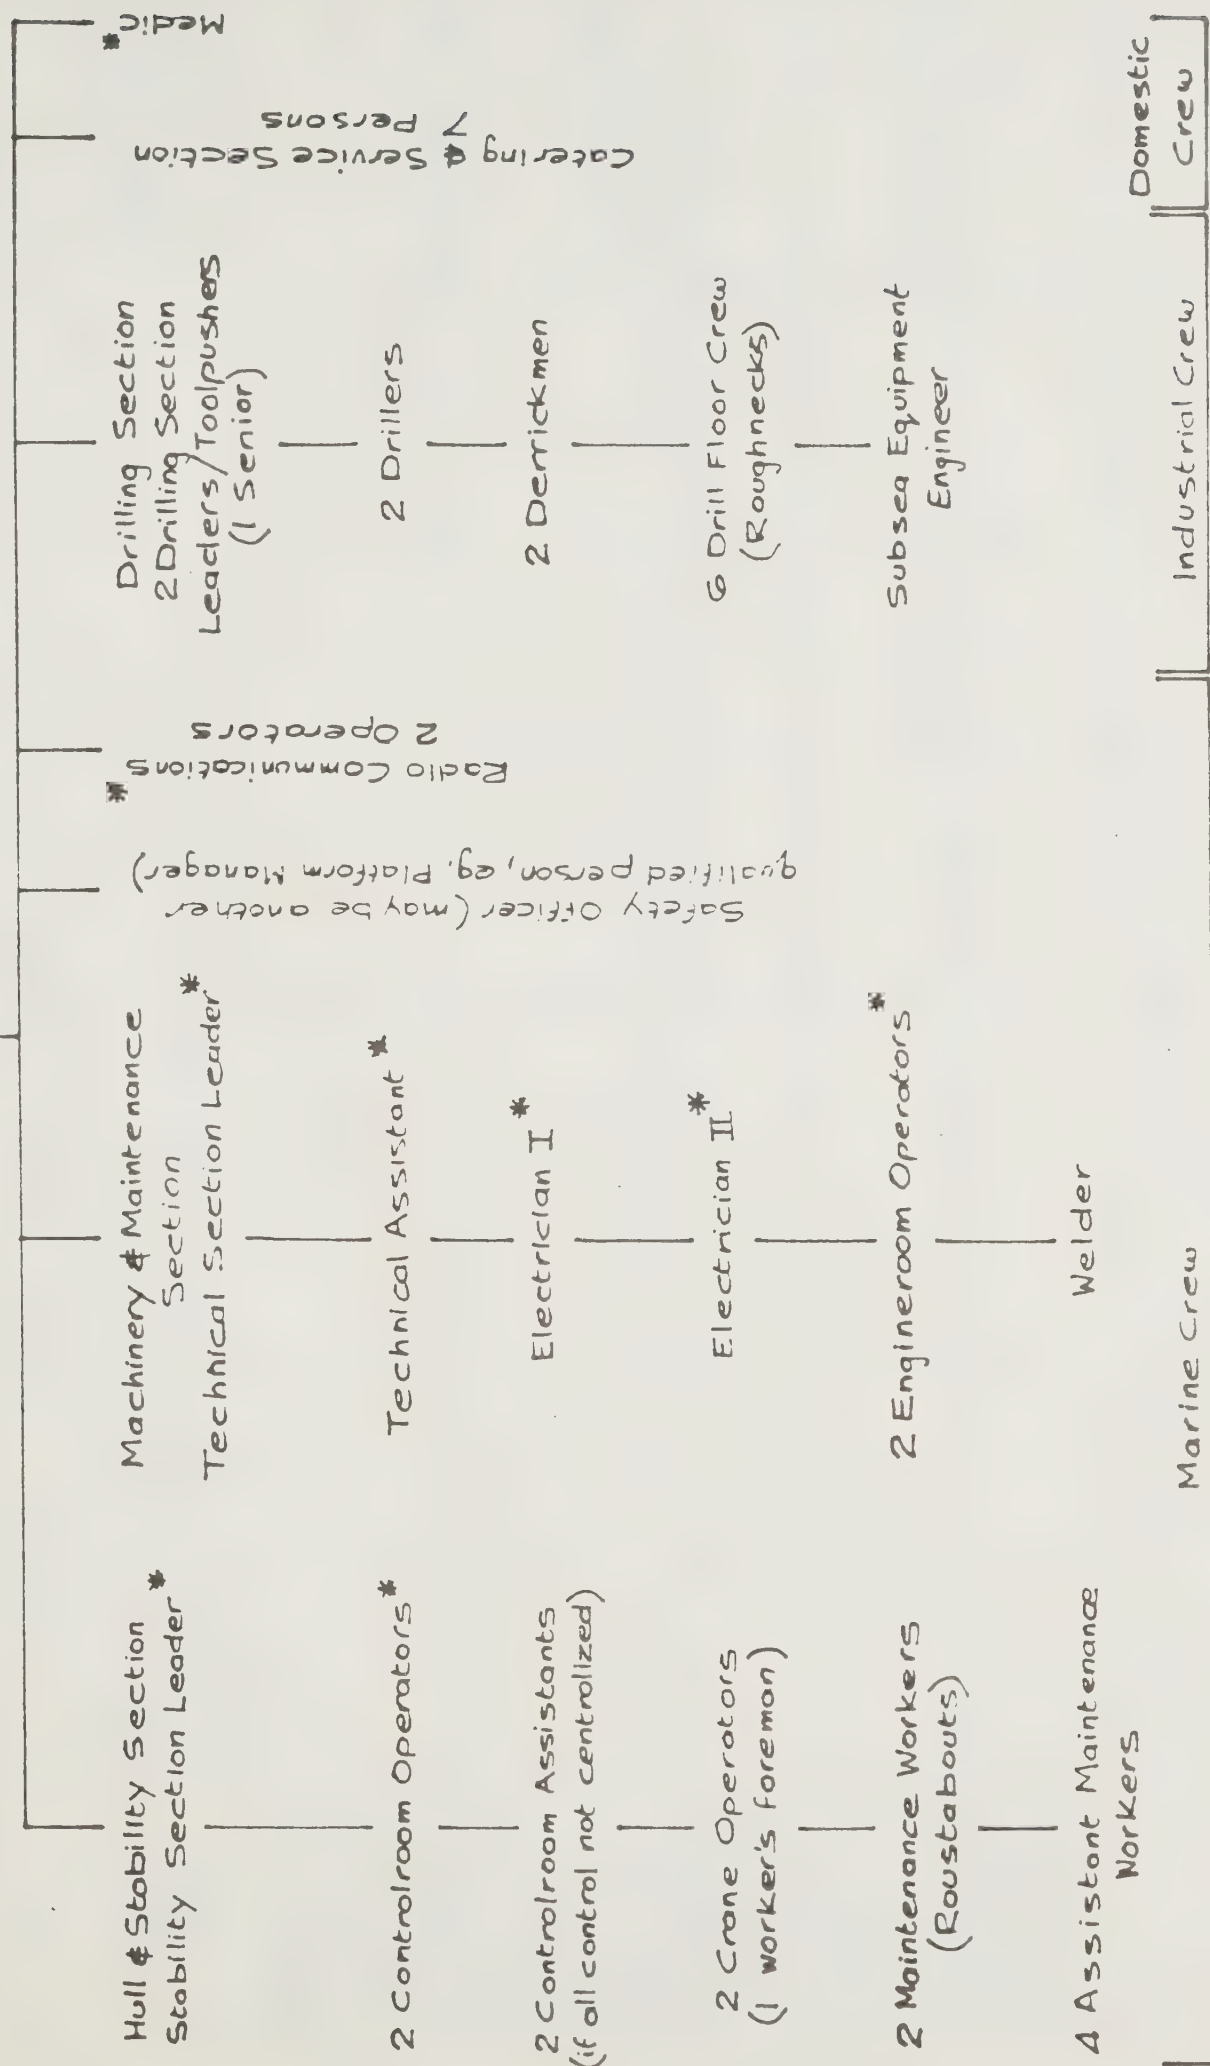 Hull & Stability Section
Stability Section Leader*
2 Controlroom Operators*
2 Controlroom Assistants
(if all control not centralized)
2 Crane Operators
(1 worker's foreman)
2 Maintenance Workers
(Roustabouts)
4 Assistant Maintenance
Workers
Machinery & Maintenance
Section
Technical Section Leader*
Technical Assistant*
Electrician I*
Electrician II*
2 Engineroom Operators*
Welder
Safety Officer (may be another
qualified person, eg. Platform Manager)
*Radio Communications
2 Operators
Drilling Section
2 Drilling Section
Leaders/Toolpushers
(1 Senior)
2 Drillers
2 Derrickmen
6 Drill Floor Crew
(Roughnecks)
Subsea Equipment
Engineer
Catering & Service Section
7 Persons
*Medic
Marine Crew
Industrial Crew
Domestic
Crew